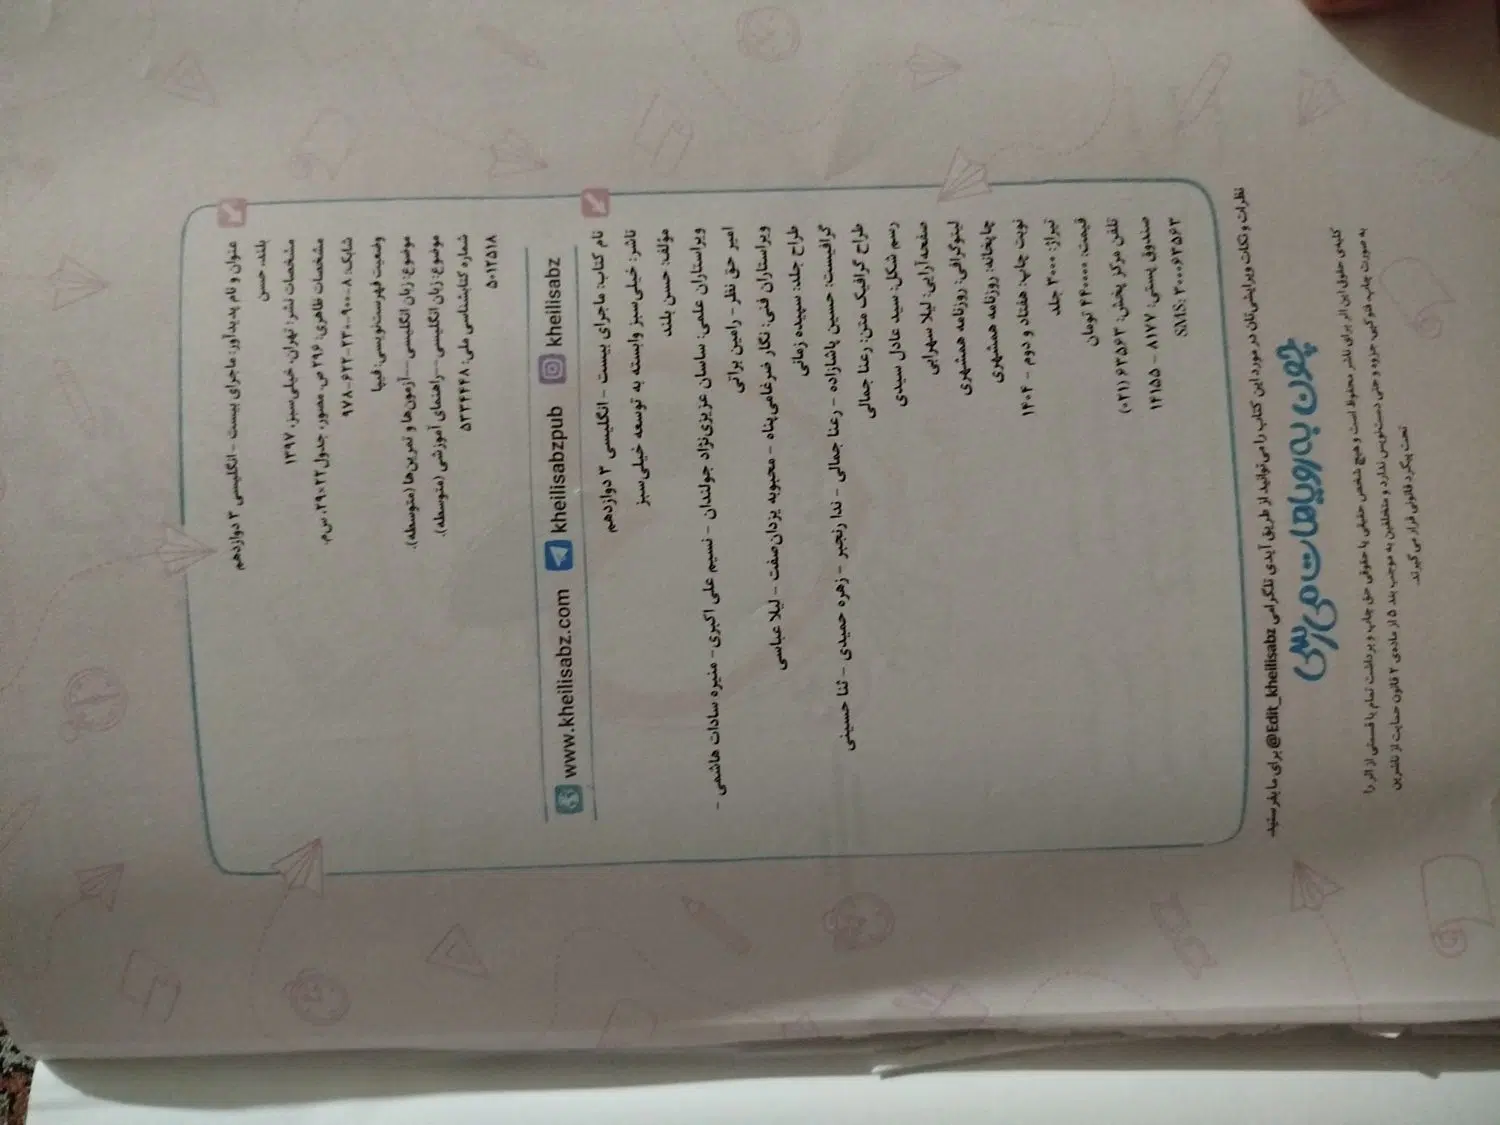 عنوان و نام پدیدآور: ماجرای بیست - انگلیسی ۳ دوازدهم
بلند، حسن
مشخصات نشر: تهران، خیلی‌سبز، ۱۳۹۷
مشخصات ظاهری: ۲۹۶ ص، مصور، جدول ۲۲×۲۹، س‌م.
شابک: ۸-۹۰۰-۲۳۰-۶۲۲-۹۷۸
وضعیت فهرست‌نویسی: فیپا
موضوع: زبان انگلیسی--آزمون‌ها و تمرین‌ها (متوسطه).
موضوع: زبان انگلیسی--راهنمای آموزشی (متوسطه).
شماره کتابشناسی ملی: ۵۳۳۴۴۴۸
۵۰۱۲۵۱۸
www.kheilisabz.com kheilisabzpub kheilisabz
نام کتاب: ماجرای بیست - انگلیسی ۳ دوازدهم
ناشر: خیلی‌سبز وابسته به توسعه خیلی‌سبز
مؤلف: حسن بلند
ویراستاران علمی: ساسان عزیزی‌نژاد جولندان - نسیم علی اکبری - منیره سادات هاشمی -
امیر حق نظر - رامین براتی
ویراستاران فنی: نگار ضرغامی‌پناه - محبوبه یزدان‌صفت - لیلا عباسی
طراح جلد: سپیده زمانی
گرافیست: حسین پاشازاده - رعنا جمالی - ندا رنجبر - زهره حمیدی - ثنا حسینی
طراح گرافیک متن: رعنا جمالی
رسم شکل: سید عادل سیدی
صفحه‌آرایی: لیلا سهرابی
لیتوگرافی: روزنامه همشهری
چاپخانه: روزنامه همشهری
نوبت چاپ: هفتاد و دوم - ۱۴۰۴
تیراژ: ۳۰۰۰ جلد
قیمت: ۴۴۰۰۰۰ تومان
تلفن مرکز پخش: ۶۳۵۶۳(۰۲۱)
صندوق پستی: ۸۱۷۷ - ۱۴۱۵۵
SMS: ۳۰۰۰۶۳۵۶۳
نظرات و نکات ویرایشی‌تان در مورد این کتاب را می‌توانید از طریق آیدی تلگرامی @Edit_kheilisabz برای ما بفرستید.
چون به رویاهات می‌رسی
کلیه‌ی حقوق این اثر برای ناشر محفوظ است و هیچ شخص حقیقی یا حقوقی حق چاپ و برداشت تمام یا قسمتی از اثر را
به صورت چاپ، فتوکپی، جزوه و حتی دست‌نویس ندارد و متخلفین به موجب بند ۵ از ماده‌ی ۲ قانون حمایت از ناشرین
تحت پیگرد قانونی قرار می‌گیرند.